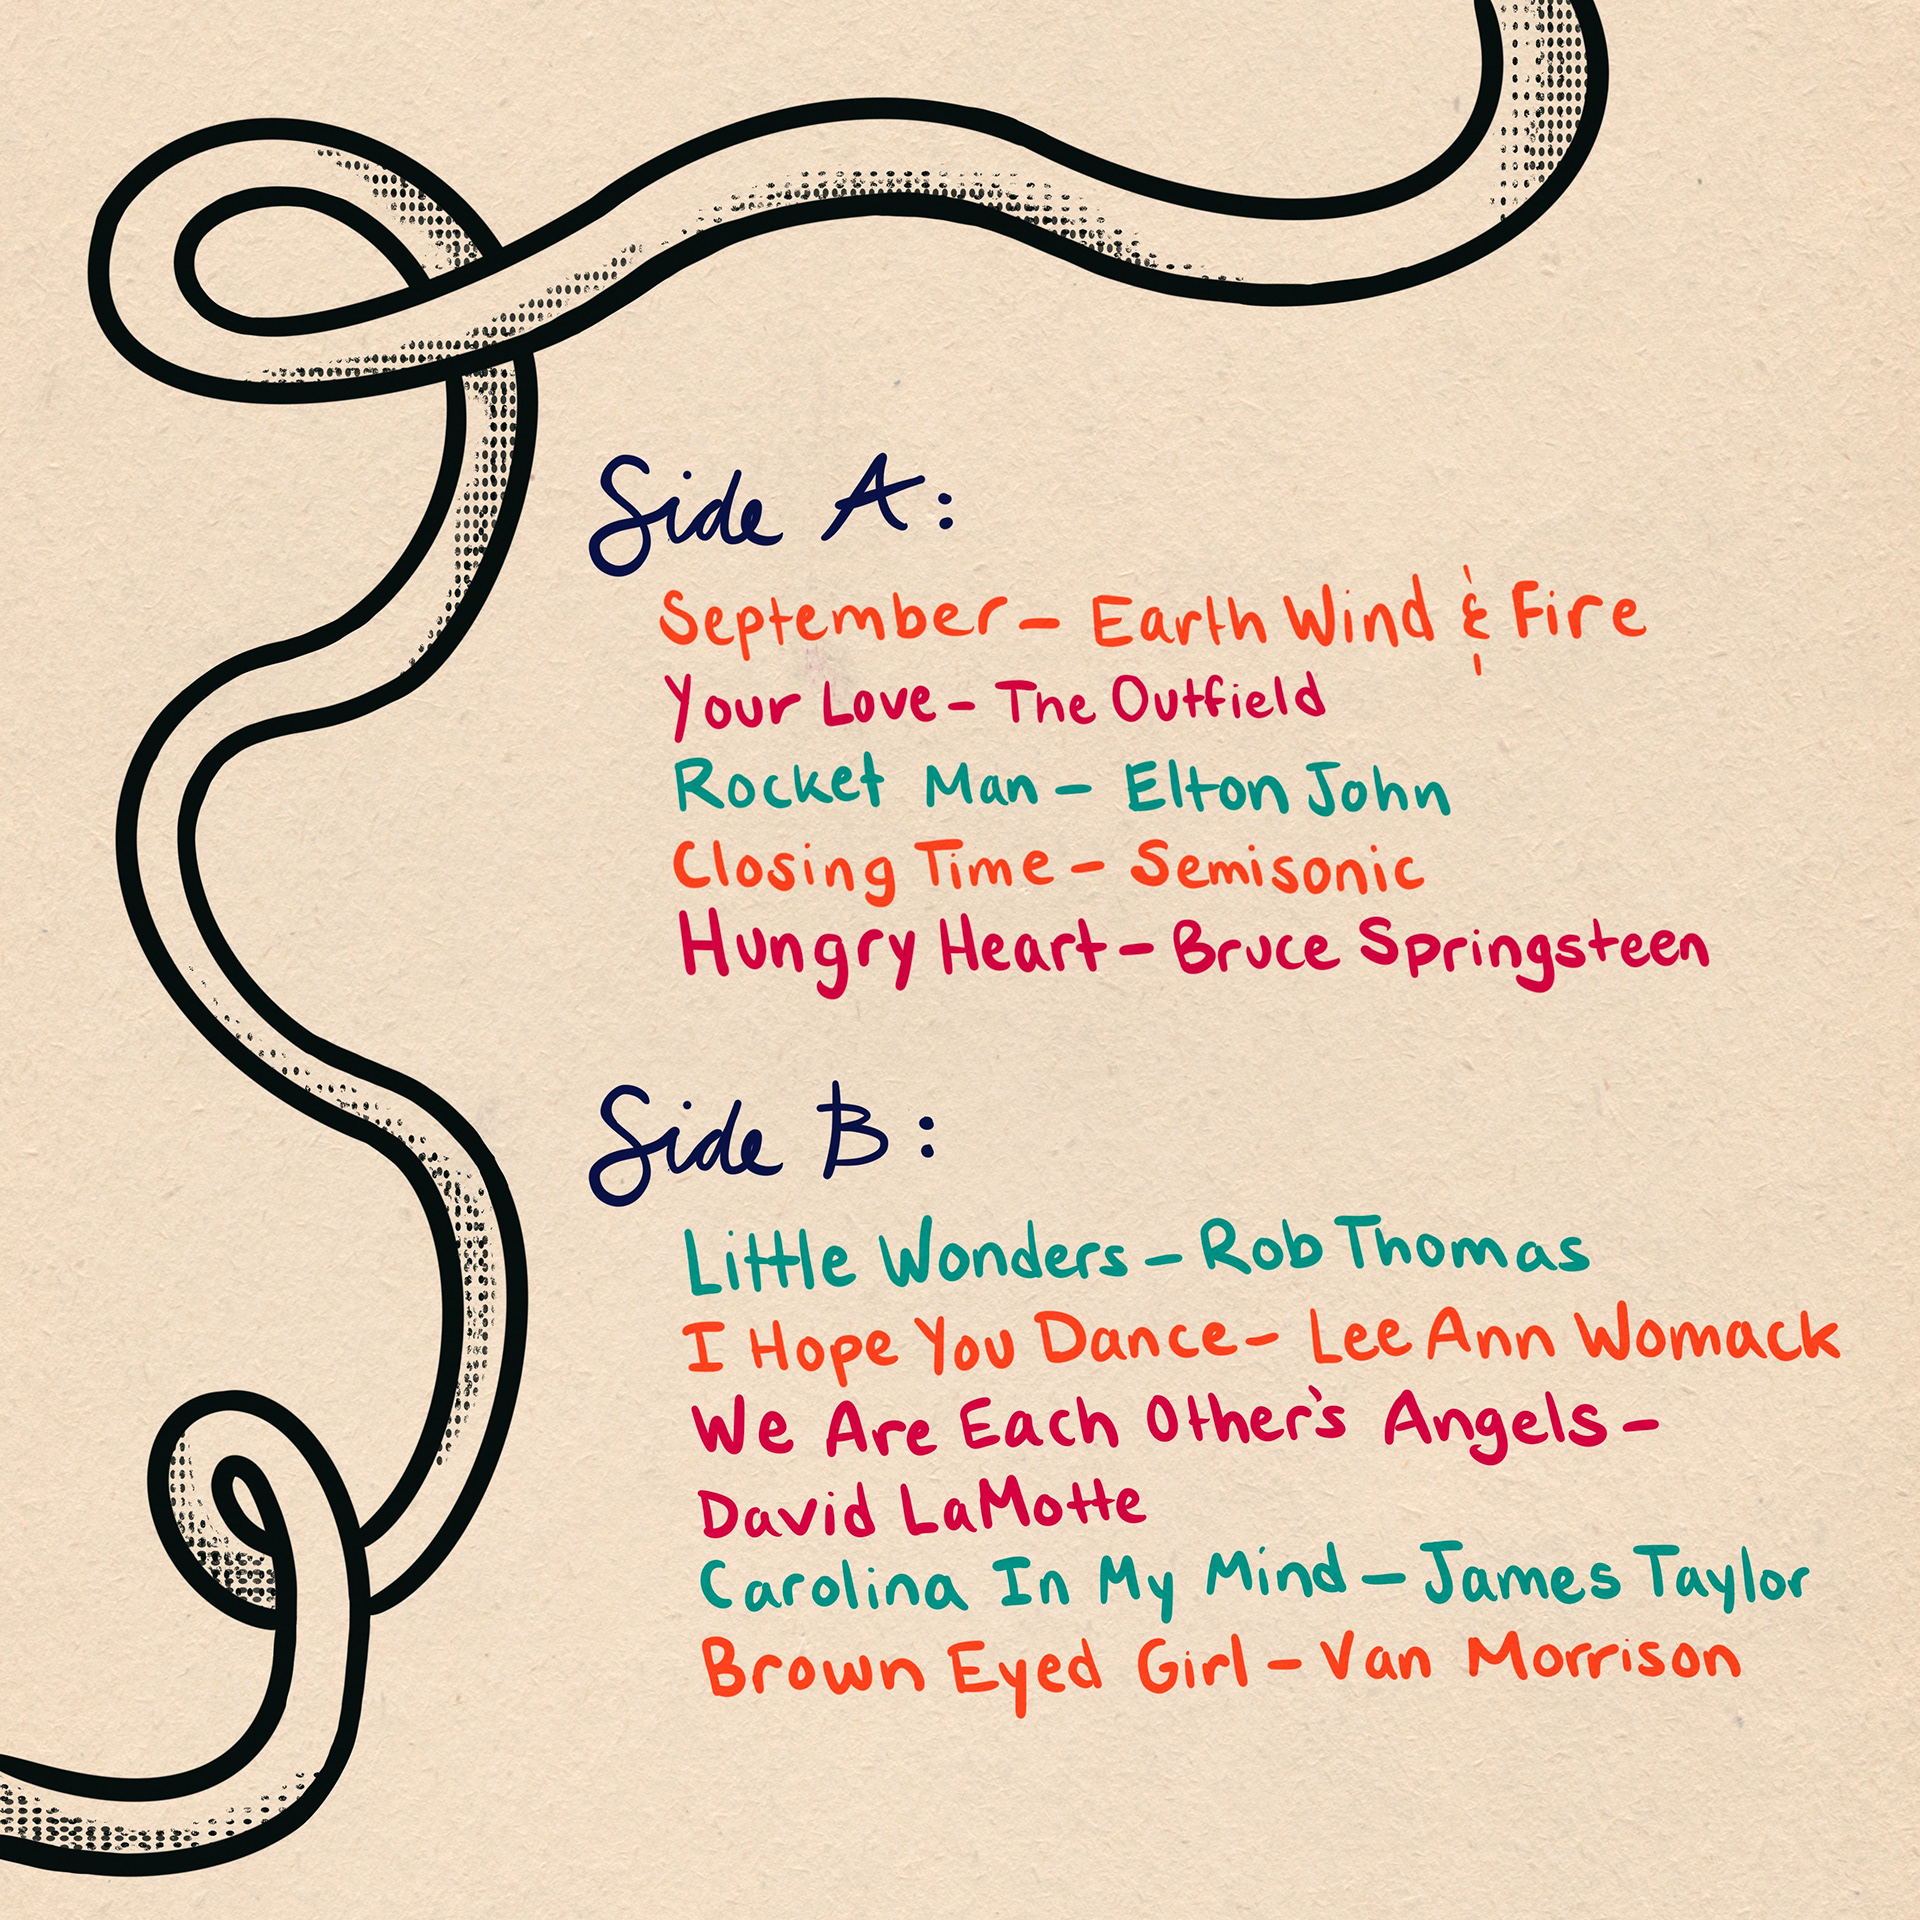 Side A:
September - Earth Wind & Fire
Your Love - The Outfield
Rocket Man - Elton John
Closing Time - Semisonic
Hungry Heart - Bruce Springsteen
Side B:
Little Wonders - Rob Thomas
I Hope You Dance - Lee Ann Womack
We Are Each Other's Angels -
David LaMotte
Carolina In My Mind - James Taylor
Brown Eyed Girl - Van Morrison